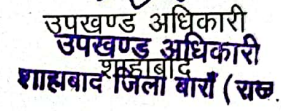 उपखण्ड अधिकारी
उपखण्ड अधिकारी
शाहाबाद
शाहाबाद जिला बाराँ (राज.